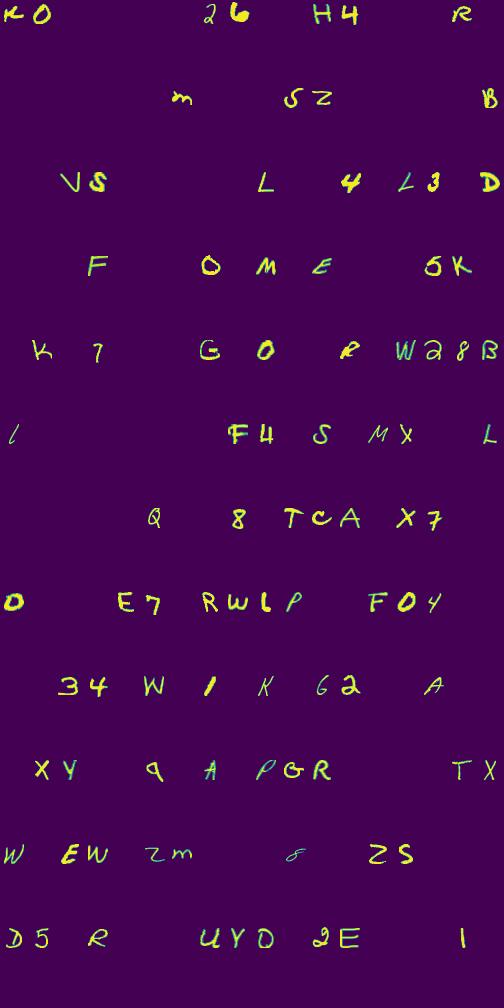 K0 26 H4 R
m SZ B
VS L 4 L3 D
F 0 M E 5K
K 7 G 0 R W28B
l F4 S MX L
Q 8 TCA X7
0 E7 RWLP F04
34 W 1 K G2 A
XY 9 A PGR TX
W EW Zm 8 ZS
D5 R UYD 2E 1